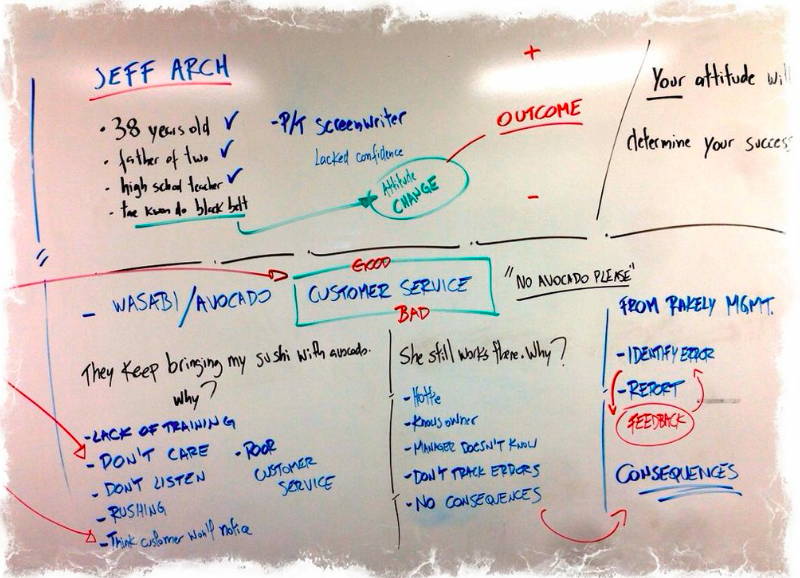 JEFF ARCH
• 38 years old ✓
• father of two ✓
• high school teacher ✓
• tae kwon do black belt
- P/T SCREENWRITER
Lacked confidence
Attitude
CHANGE
+
OUTCOME
-
Your attitude wil
determine your success
- WASABI/AVOCADO
GOOD
CUSTOMER SERVICE
BAD
"NO AVOCADO PLEASE"
They keep bringing my sushi with avocado.
Why?
- LACK OF TRAINING
- DON'T CARE
- DON'T LISTEN
- RUSHING
- Think customer won't notice
• POOR
CUSTOMER
SERVICE
She still works there. Why?
- Hottie
- Knows owner
- MANAGER DOESN'T KNOW
- DON'T TRACK ERRORS
- NO CONSEQUENCES
FROM MGMT.
- IDENTIFY ERROR
- REPORT
FEEDBACK
CONSEQUENCES